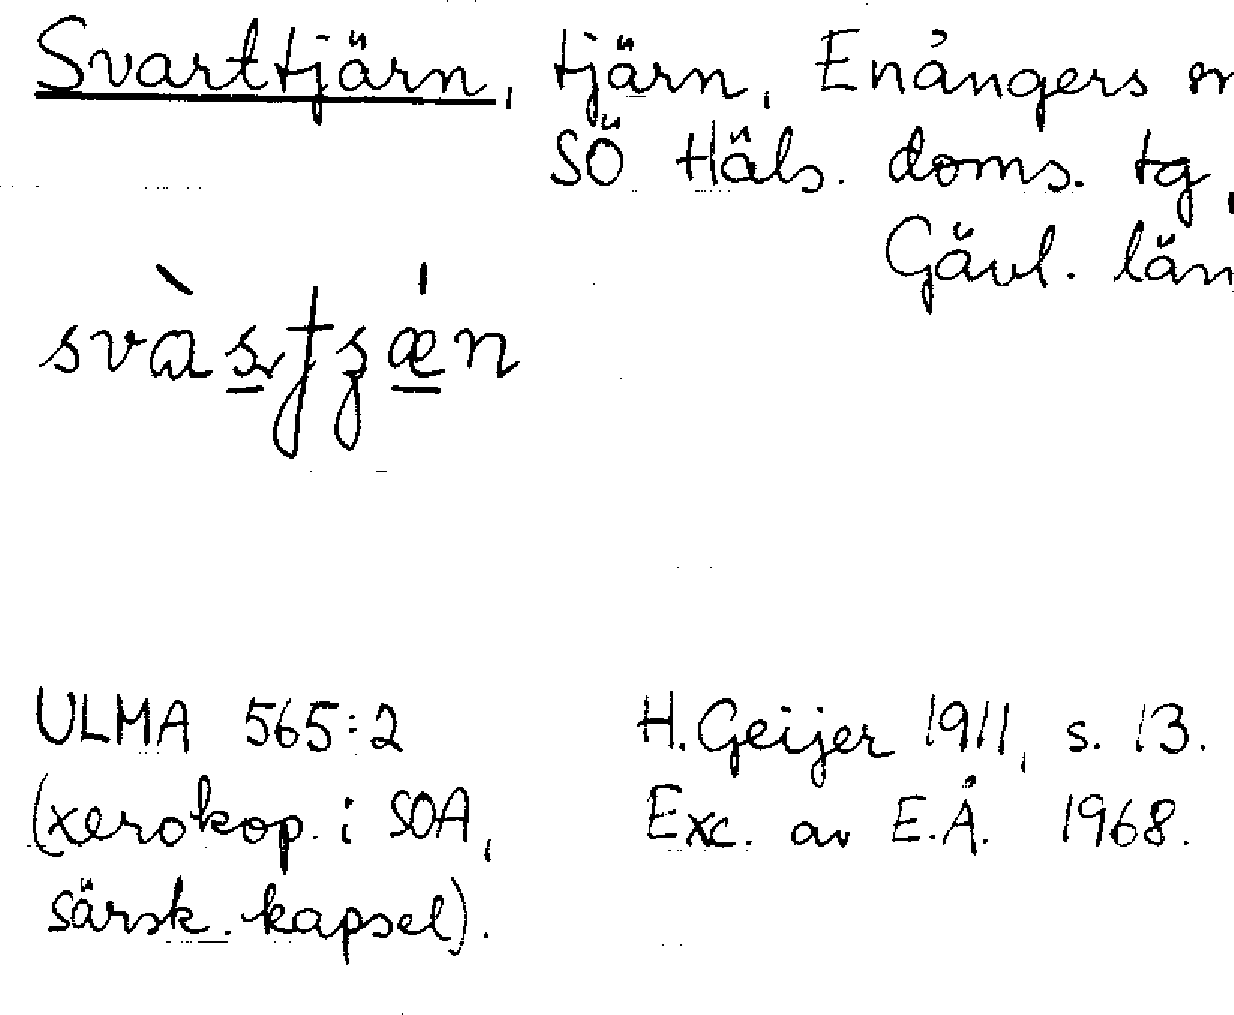 Svarttjärn, tjärn, Enångers
SÖ Häls. doms. tg,
Gävl. län
ULMA 565:2 H. Geijer 1911, s. 13.
(xerokop. i SOA, Exc. av E.Å. 1968.
särsk. kapsel).